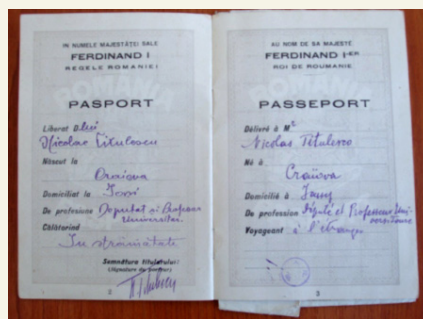 IN NUMELE MAJESTĂȚEI SALE
FERDINAND I
REGELE ROMANIEI
PASPORT
Liberat D.lui
Nicolae Titulescu
Născut la
Craiova
Domiciliat la Iassi
De profesiune Deputat si Profesor
Universitar
Călătorind
In străinătate
Semnătura titularului:
(Signature du porteur)
2
AU NOM DE SA MAJESTÉ
FERDINAND I-ER
ROI DE ROUMANIE
PASSEPORT
Délivré à Mr
Nicolas Titulesco
Né à
Craïova
Domicilié à Jassy
De profession Député et Professeur Uni-
versitaire
Voyageant à l'étranger
3